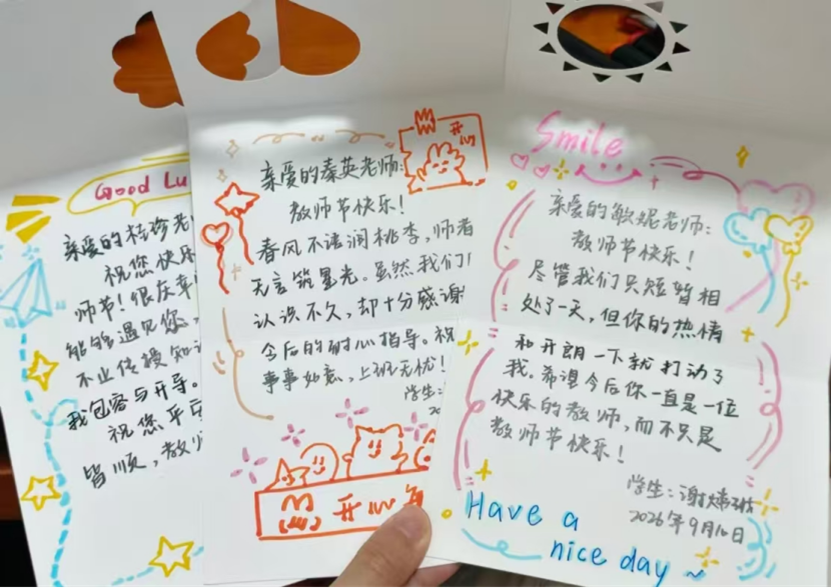 Good Lu
亲爱的
祝您快乐
师节!很庆幸
能够遇见您,
不止传授知
我包容与开导。
祝您平安
皆顺,教师
开心
亲爱的秦英老师:
教师节快乐!
春风不语润桃李,师者
无言筑星光。虽然我们
认识不久,却十分感谢
今后的耐心指导。祝
事事如意,上班无忧!
学生:
20
开心
Smile
亲爱的敏妮老师:
教师节快乐!
尽管我们只短暂相
处了一天,但你的热情
和开朗一下就打动了
我。希望今后你一直是一位
快乐的教师,而不只是
教师节快乐!
学生:谢
2026年9月10日
Have a
nice day ~